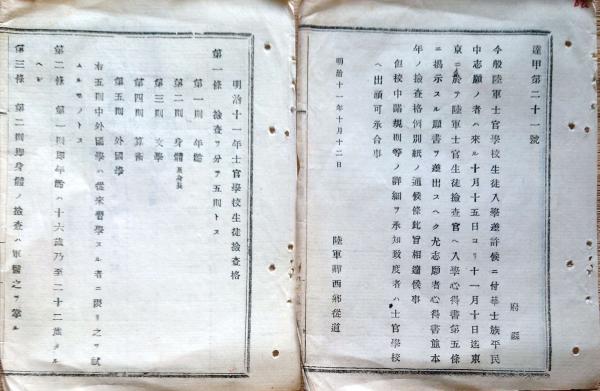 達甲第二十一號
府縣
今般陸軍士官學校生徒入學差許候ニ付華士族平民
中志願ノ者ハ來ル十月十五日ヨリ十一月十日迄東
京ニ於テ陸軍士官生徒檢査官ヘ入學心得書第五條
ニ揭示スル願書ヲ差出スヘク尤志願者心得書竝本
年ノ檢査格例別紙ノ通候條此旨相達候事
但校中諸規則等ノ詳細ヲ承知致度者ハ士官學校
ヘ出頭可承合事
明治十一年十月十二日
陸軍卿西鄕從道
明治十一年士官學校生徒檢査格
第一條 檢査ヲ分テ五則トス
第一則 年齡
第二則 身體
第三則 文學
第四則 算術
第五則 外國學
右五則中外國學ハ從來習學スル者ニ限リ之ヲ試
ムルモノトス
第二條 第一則即年齡ハ十六歲乃至二十二歲タル
ヘシ
第三條 第二則即身體ノ檢査ハ軍醫之ヲ掌ル